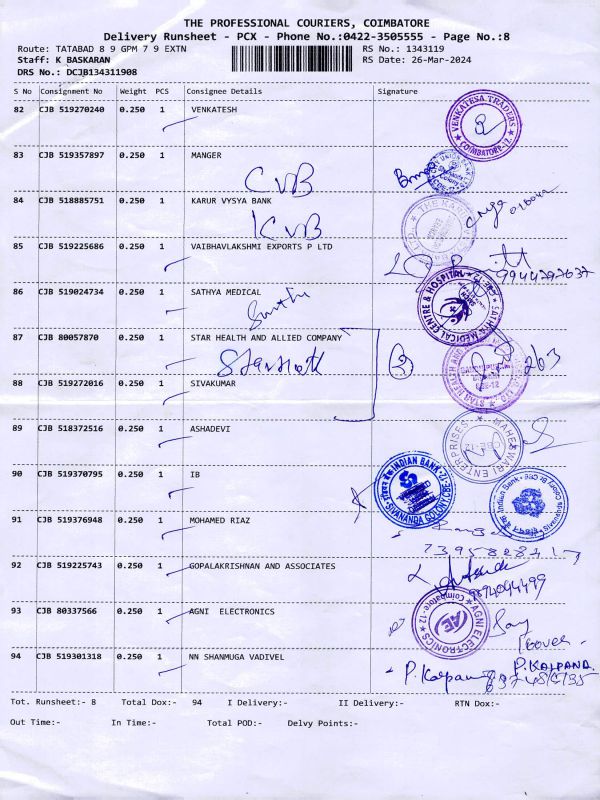 THE PROFESSIONAL COURIERS, COIMBATORE
Delivery Runsheet - PCX - Phone No.:0422-3505555 - Page No.:8
Route: TATABAD 8 9 GPM 7 9 EXTN RS No.: 1343119
Staff: K BASKARAN RS Date: 26-Mar-2024
DRS No.: DCJB134311908
S No Consignment No Weight PCS Consignee Details Signature
82 CJB 519270240 0.250 1 VENKATESH
VENKATESA TRADERS COIMBATORE-12
83 CJB 519357897 0.250 1 MANGER
CUB
84 CJB 518885751 0.250 1 KARUR VYSYA BANK
KVB
85 CJB 519225686 0.250 1 VAIBHAVLAKSHMI EXPORTS P LTD
9944797637
86 CJB 519024734 0.250 1 SATHYA MEDICAL
SATHYA MEDICAL CENTRE & HOSPITAL
87 CJB 80057870 0.250 1 STAR HEALTH AND ALLIED COMPANY
3 263
88 CJB 519272016 0.250 1 SIVAKUMAR
89 CJB 518372516 0.250 1 ASHADEVI
MAHESWARI ENTERPRISES CBE-12
90 CJB 519370795 0.250 1 IB
INDIAN BANK SIVANANDA COLONY CBE-12
Indian Bank
91 CJB 519376948 0.250 1 MOHAMED RIAZ
92 CJB 519225743 0.250 1 GOPALAKRISHNAN AND ASSOCIATES
9894094499
93 CJB 80337566 0.250 1 AGNI ELECTRONICS
AGNI ELECTRONICS Coimbatore-12 AE
94 CJB 519301318 0.250 1 NN SHANMUGA VADIVEL
P. KALPANA
Tot. Runsheet:- 8 Total Dox:- 94 I Delivery:- II Delivery:- RTN Dox:-
Out Time:- In Time:- Total POD:- Delvy Points:-